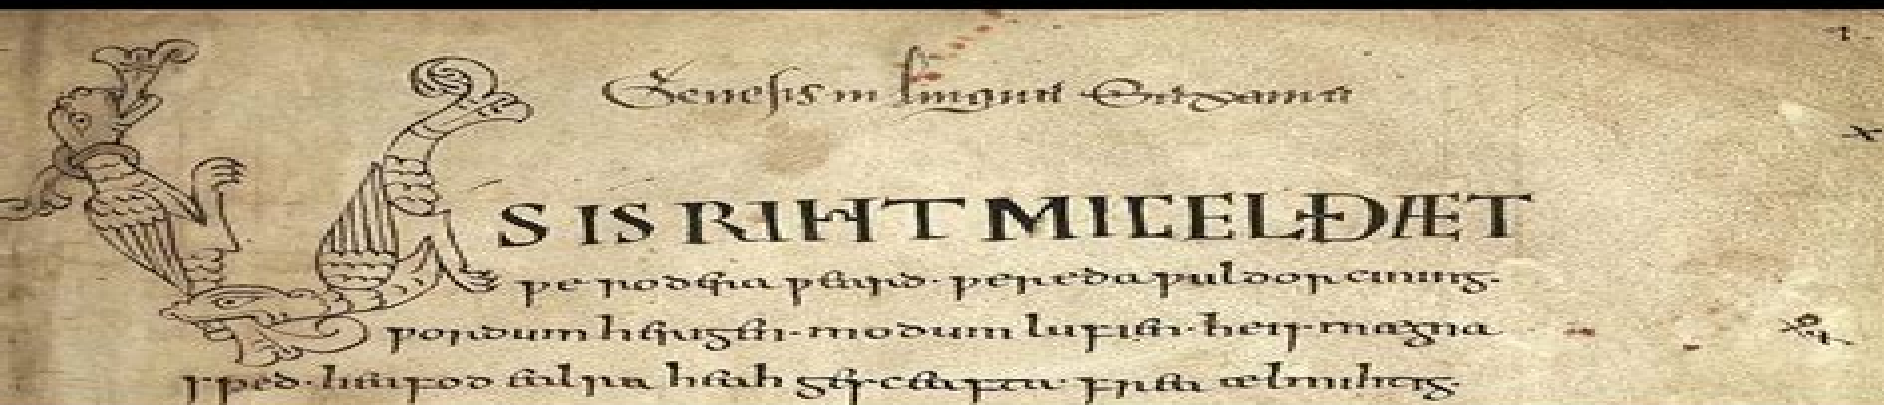 Genesis in lingua Saxania
US IS RIHT MICEL ÐÆT
ƿe rodera ƿeard · ƿereda ƿuldor cining ·
ƿordum herigen · modum lufien · he is mægna
sped · heafod ealra heah gesceafta · frea ælmihtig ·